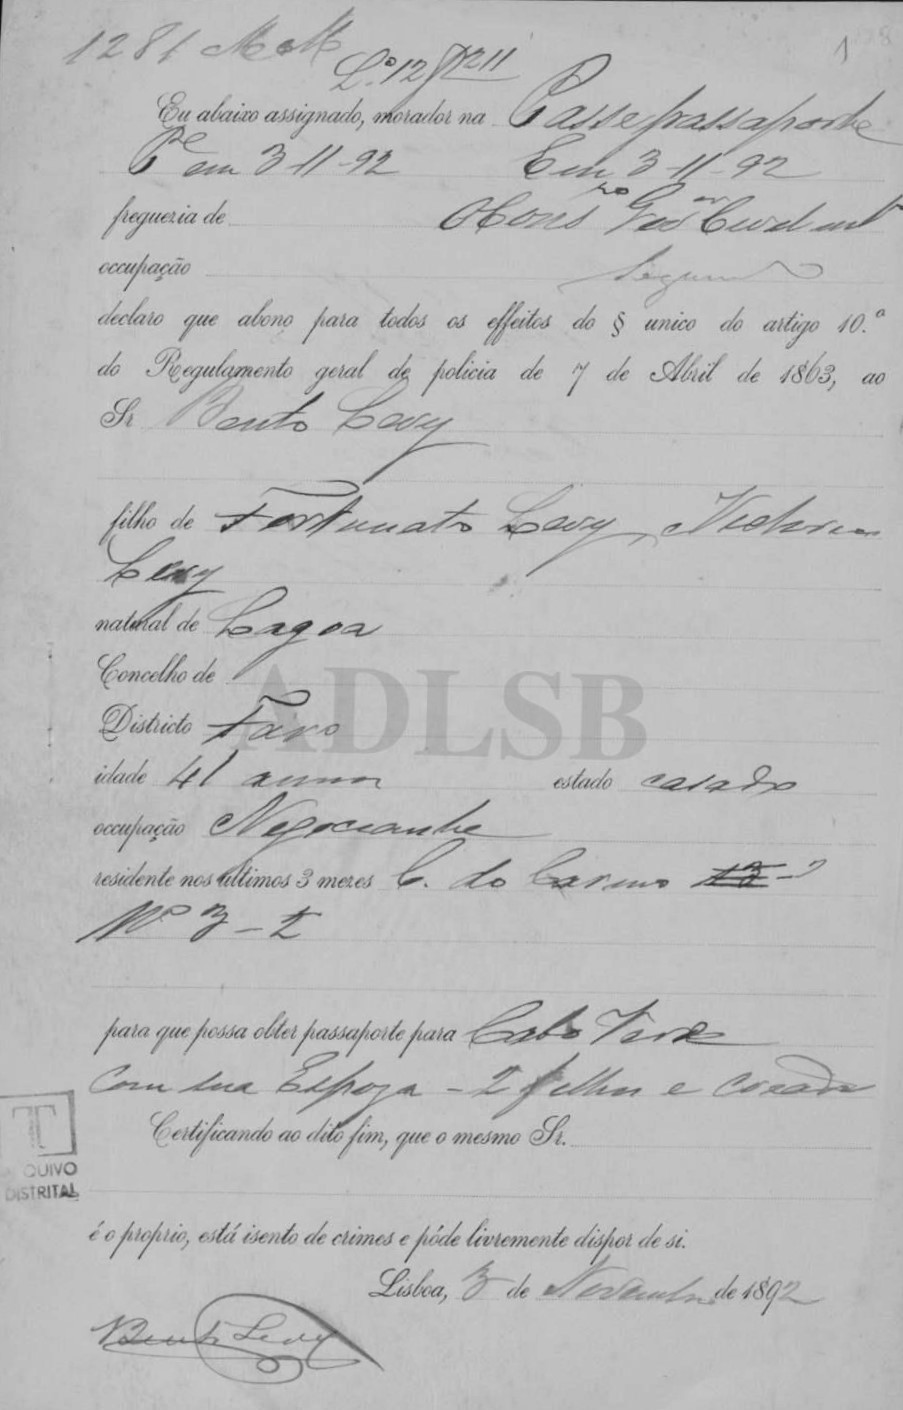 1281
1
L.º 12 f 211
Eu abaixo assignado, morador na Passe passaporte
P.e em 3-11-92 Em 3-11-92
freguezia de
occupação
declaro que abono para todos os effeitos do § unico do artigo 10.º
do Regulamento geral de policia de 7 de Abril de 1863, ao
Sr Bento Levy
filho de Fortunato Levy, Victoria
Levy
natural de Lagoa
Concelho de
Districto Faro
idade 41 annos estado casado
occupação Negociante
residente nos ultimos 3 mezes C. do Carmo
Nº 3-2
para que possa obter passaporte para Cabo Verde
com sua Espoza - 2 filhos e creada
Certificando ao dito fim, que o mesmo Sr.
é o proprio, está isento de crimes e póde livremente dispor de si.
Lisboa, 3 de Novembro de 1892
Bento Levy
ADLSB
T
QUIVO
DISTRITAL